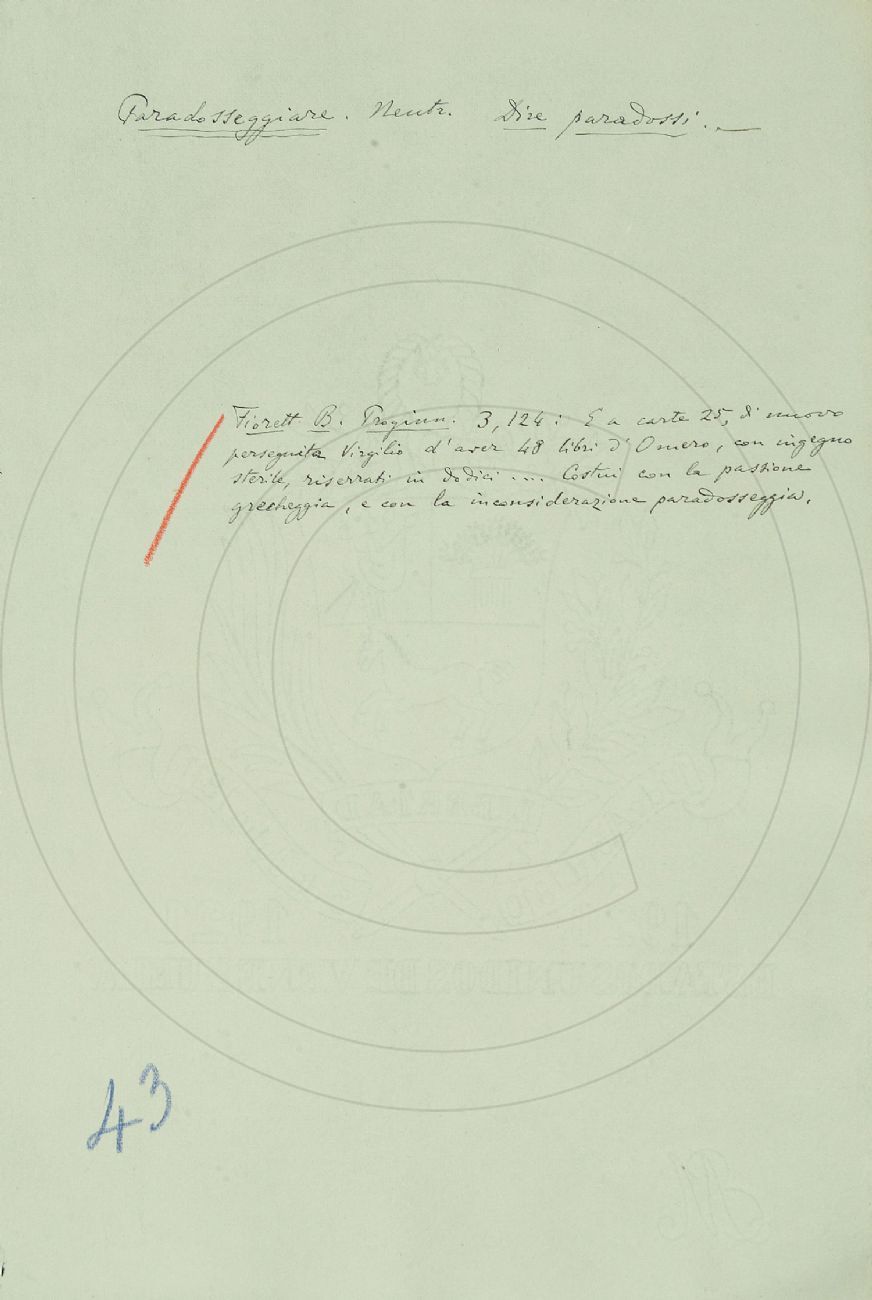 Paradosseggiare. Neutr. Dire paradossi. —
Fiorett. B. Proginn. 3, 124: E a carte 25, di nuovo
perseguita Virgilio d'aver 48 libri d'Omero, con ingegno
sterile, riserrati in dodici .... Costui con la passione
grecheggia, e con la inconsiderazione paradosseggia.
43